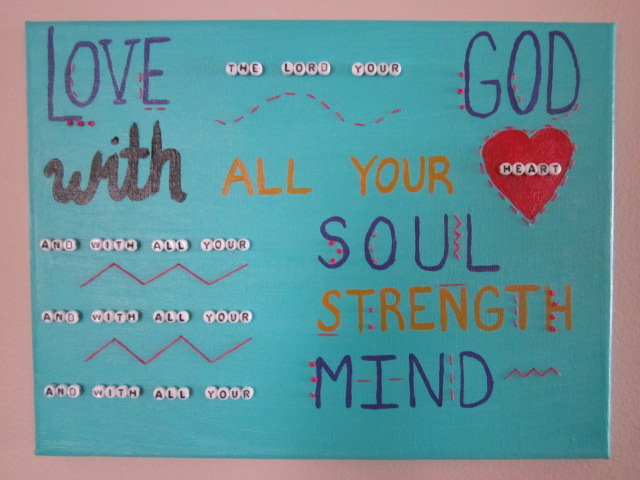 LOVE THE LORD YOUR GOD
with ALL YOUR HEART
AND WITH ALL YOUR SOUL
AND WITH ALL YOUR STRENGTH
AND WITH ALL YOUR MIND